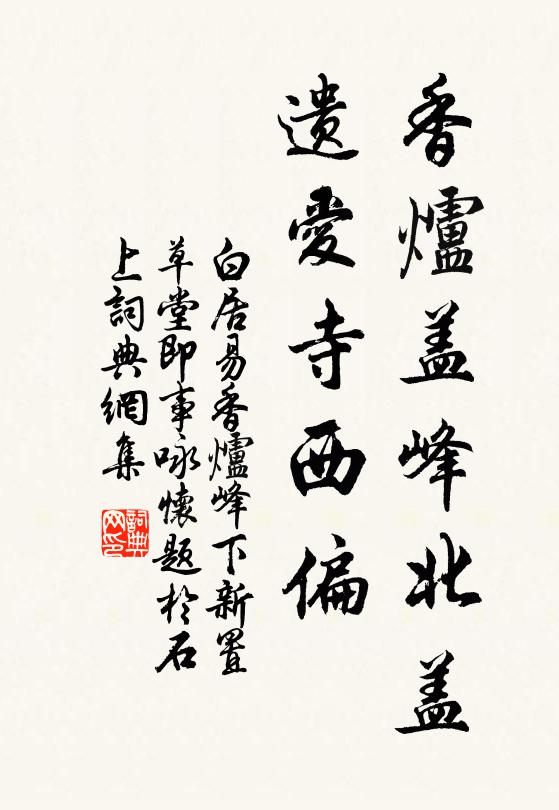 香爐盖峰北盖
遺愛寺西偏
白居易香爐峰下新置
草堂即事咏懷題於石
上詞典網集
詞典网印